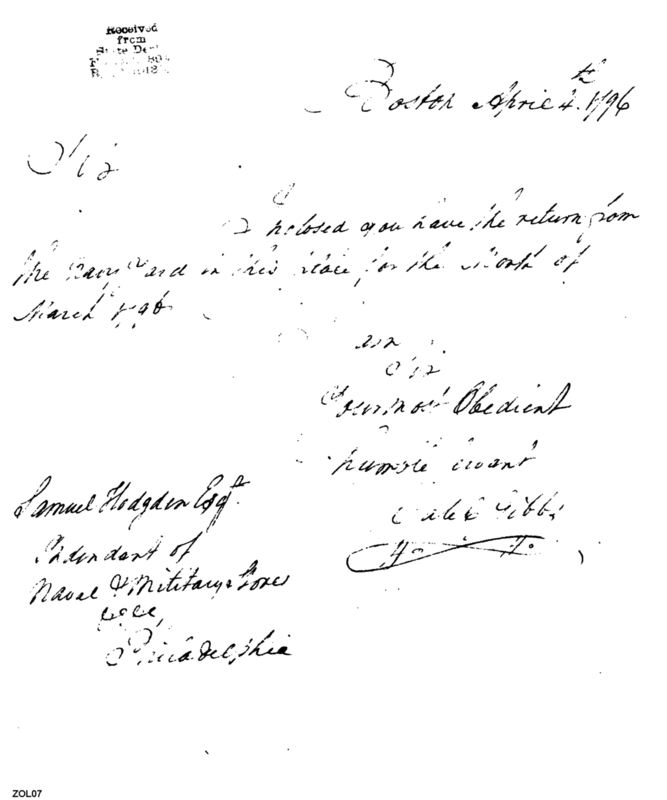 Received
from
State Dept
Boston April 4th 1796
Sir
Inclosed you have the return from
the Navy Yard in this place for the Month of
March 1796
am
Sir
Your most Obedient
humble servant
Caleb Gibbs
Samuel Hodgdon Esqr.
Intendant of
Naval & Military Stores
Philadelphia
ZOL07